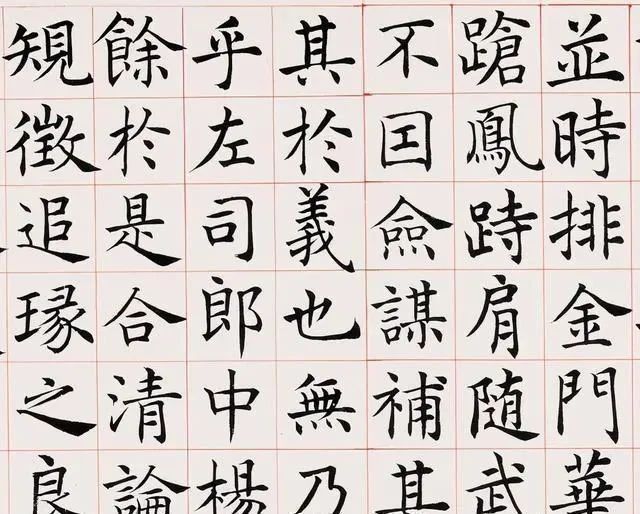 並時排金門華
蹌鳳跱肩随武
不囙僉謀補其
其於義也無乃
乎左司郎中楊
餘於是合清論
䂓徵追瑑之良